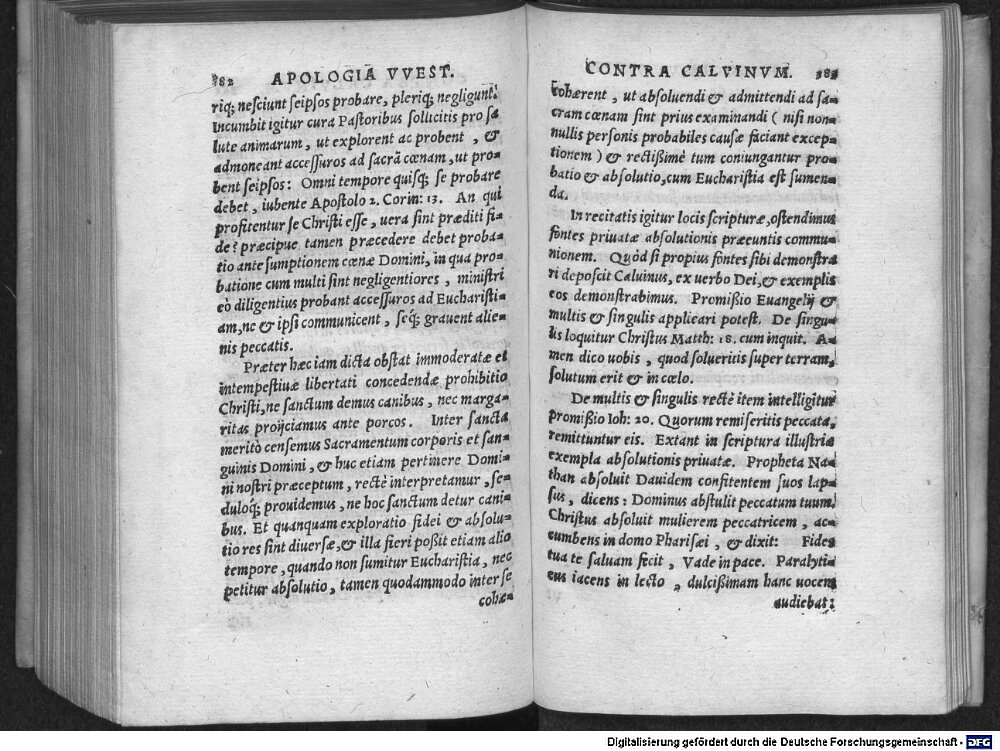 382 APOLOGIA VVEST.
riq; nesciunt seipsos probare, pleriq; negligunt.
Incumbit igitur cura Pastoribus sollicitis pro sa
lute animarum, ut explorent ac probent, &
admoneant accessuros ad sacrā cœnam, ut pro-
bent seipsos: Omni tempore quisq; se probare
debet, iubente Apostolo 2. Corin: 13. An qui
profitentur se Christi esse, uera sint præditi fi-
de? præcipue tamen præcedere debet proba-
tio ante sumptionem cœnæ Domini, in qua pro-
batione cum multi sint negligentiores, ministri
eò diligentius probant accessuros ad Eucharisti-
am, ne & ipsi communicent, seq́; grauent alie-
nis peccatis.
Præter hæc iam dicta obstat immoderatæ et
intempestiuæ libertati concedendæ prohibitio
Christi, ne sanctum demus canibus, nec marga-
ritas proijciamus ante porcos. Inter sancta
meritò censemus Sacramentum corporis et san-
guinis Domini, & huc etiam pertinere Domi-
ni nostri præceptum, rectè interpretamur, se-
duloq́; prouidemus, ne hoc sanctum detur cani-
bus. Et quanquam exploratio fidei & absolu-
tio res sint diuersæ, & illa fieri poßit etiam alio
tempore, quando non sumitur Eucharistia, nec
petitur absolutio, tamen quodammodo inter se
cohæ-
CONTRA CALVINVM. 383
cohærent, ut absoluendi & admittendi ad sa-
cram cœnam sint prius examinandi (nisi non-
nullis personis probabiles causæ faciant excep-
tionem) & rectißimè tum coniungantur pro-
batio & absolutio, cum Eucharistia est sumen-
da.
In recitatis igitur locis scripturæ, ostendimus
fontes priuatæ absolutionis præeuntis commu-
nionem. Quòd si propius fontes sibi demonstra
ri deposcit Caluinus, ex uerbo Dei, & exemplis
eos demonstrabimus. Promißio Euangelij &
multis & singulis applicari potest. De singu-
lis loquitur Christus Matth: 18. cum inquit. A-
men dico uobis, quod solueritis super terram,
solutum erit & in cœlo.
De multis & singulis rectè item intelligitur
promißio Ioh: 20. Quorum remiseritis peccata,
remittuntur eis. Extant in scriptura illustria
exempla absolutionis priuatæ. Propheta Na-
than absoluit Dauidem confitentem suos lap-
sus, dicens: Dominus abstulit peccatum tuum.
Christus absoluit mulierem peccatricem, ac-
cumbens in domo Pharisæi, & dixit: Fides
tua te saluam fecit, Vade in pace. Paralyti-
cus iacens in lecto, dulcißimam hanc uocem
audiebat:
Digitalisierung gefördert durch die Deutsche Forschungsgemeinschaft - DFG